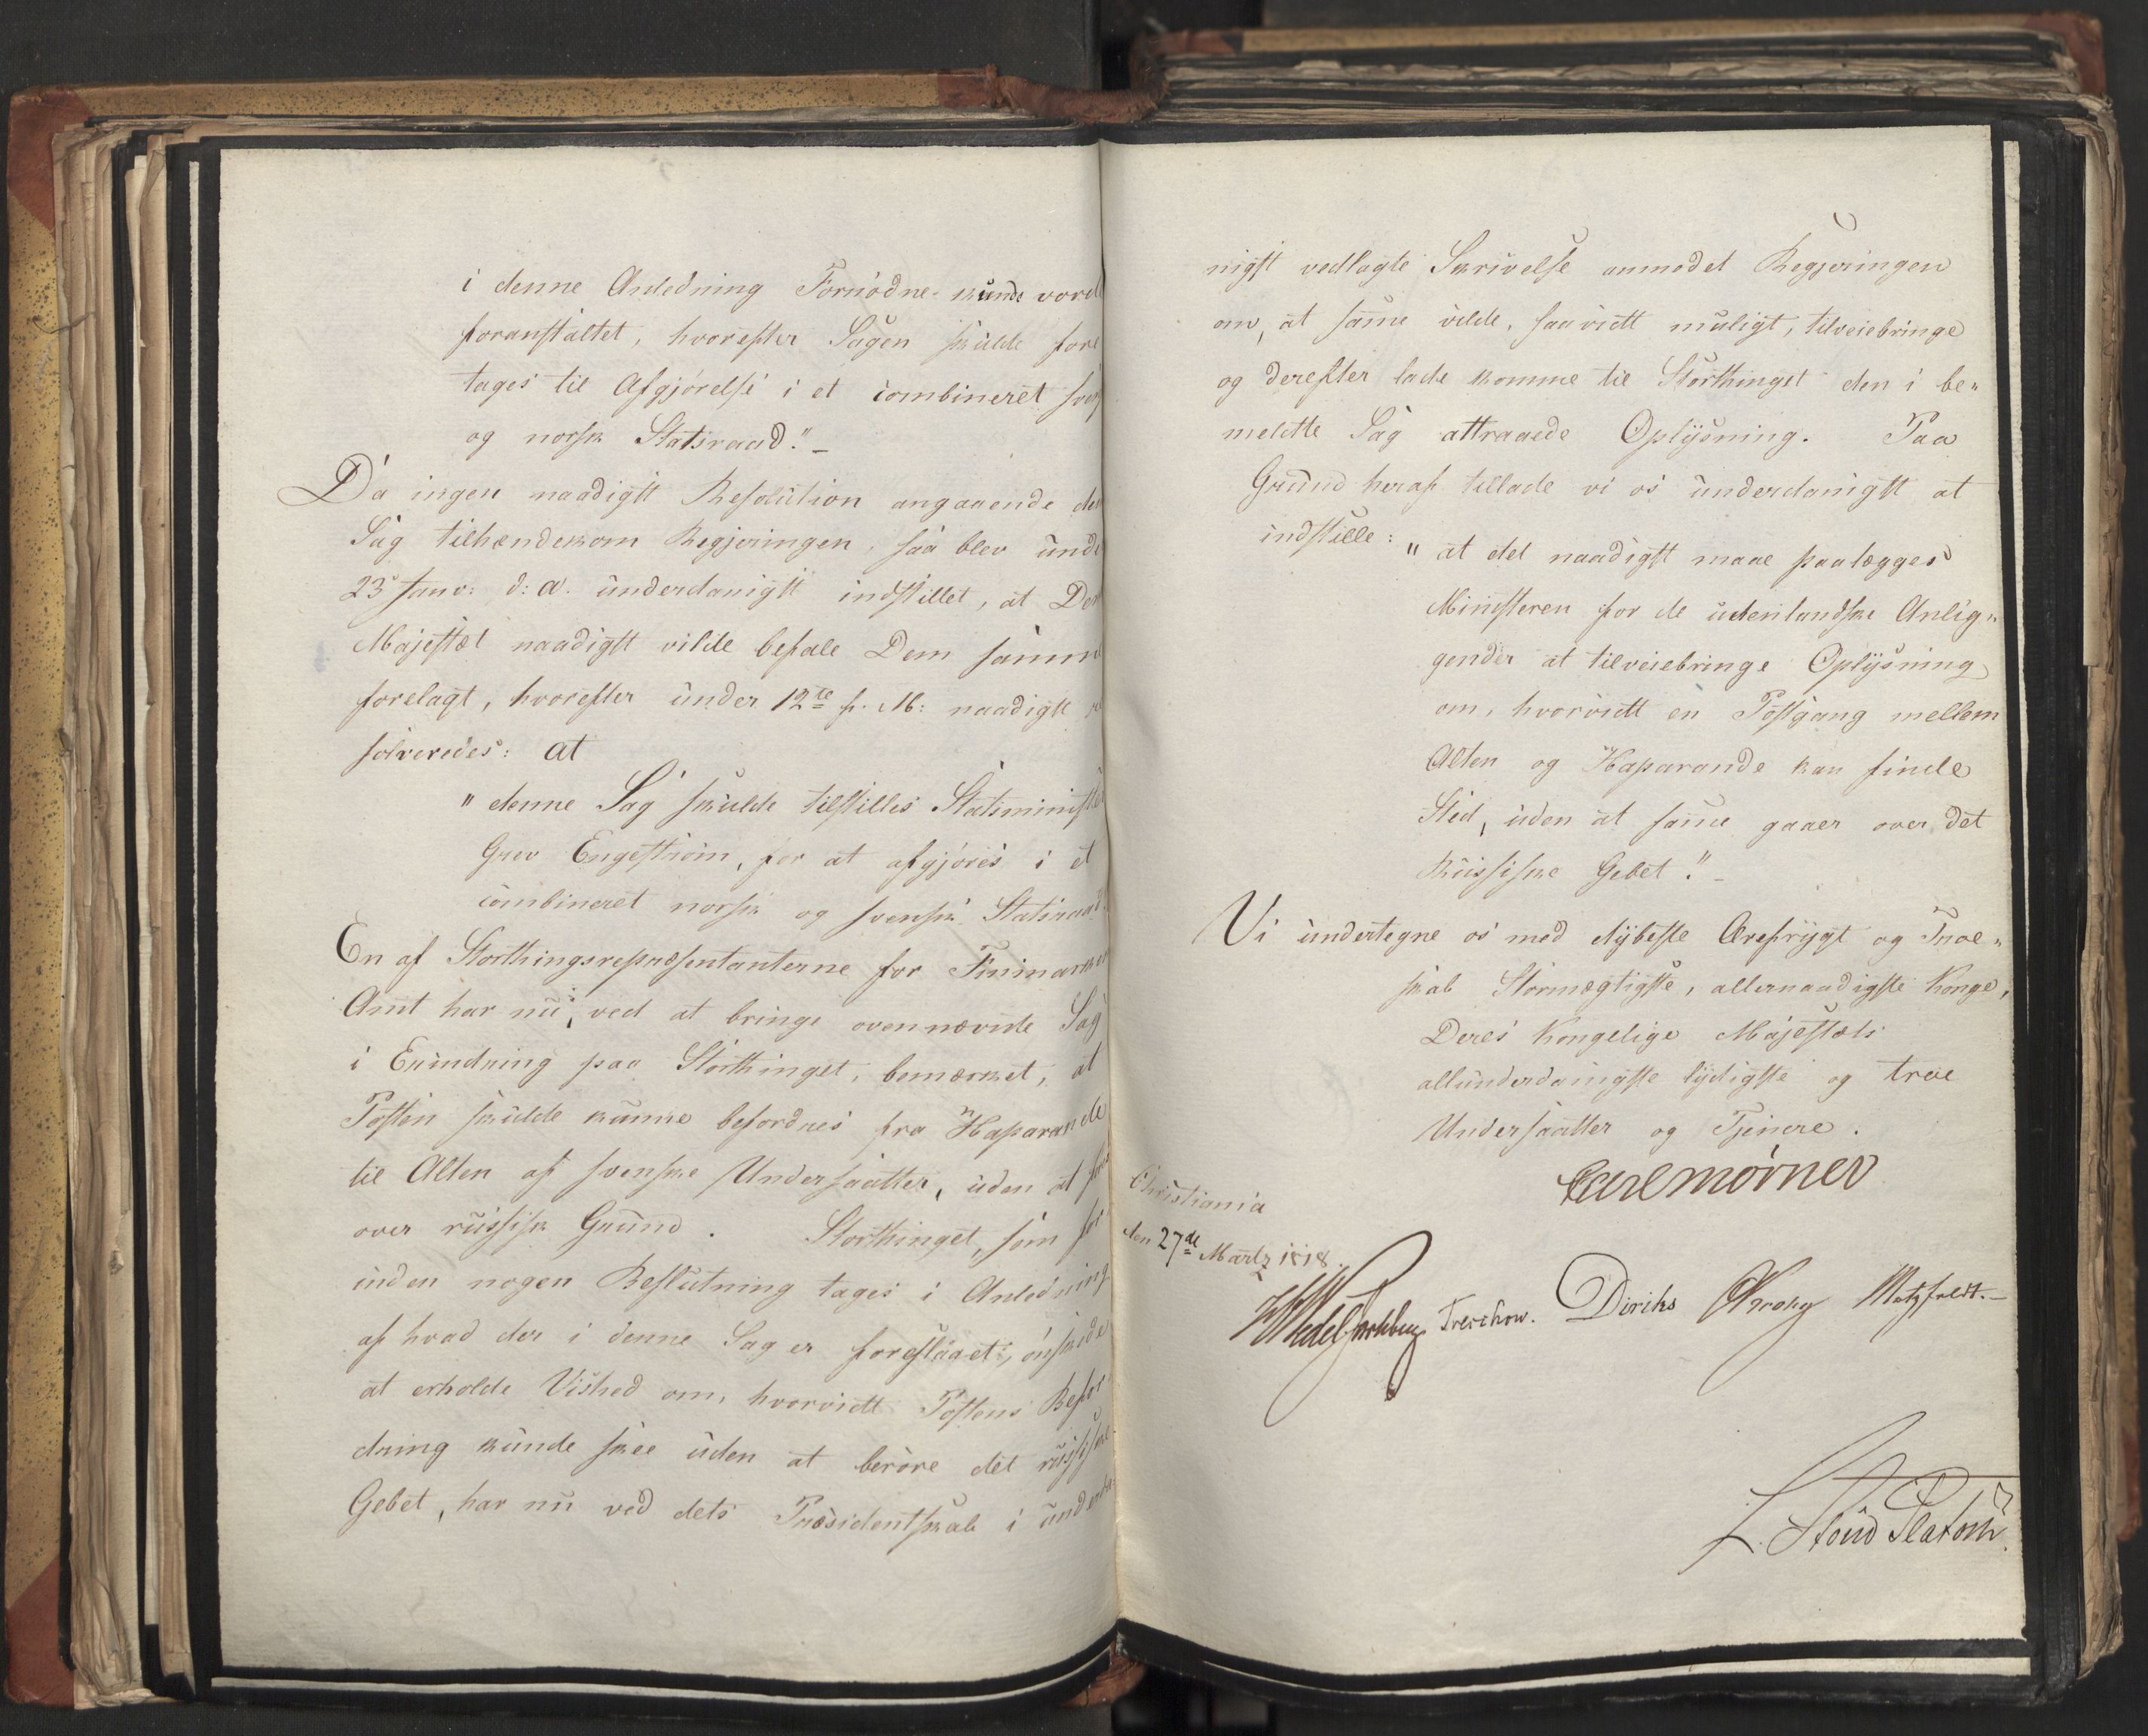 i denne Anledning Fornødne kunde vorde
foranstaltet, hvorefter Sagen skulde fore
tages til Afgjørelse i et combineret
og norsk Statsraad." –
Da ingen naadigst Resolution angaaende
Sag tilhændekom Regjeringen, saa blev
23 Janv: d: A. underdanigst indstillet, at
Majestæt naadigst vilde befale Dem
forelagt, hvorefter under 12te f. M: naadigst
solveredes: at
" denne Sag skulde tilstilles
Grev Engestrøm, for at afgjøres i et
combineret norsk og svensk Statsraad
En af Storthingsrepræsentanterne for
Amt har nu, ved at bringe ovennævnte Sag
i Erindring paa Storthinget, bemærket, at
Posten skulde kunne befordres fra Haparande
til Alten af svenske Undersaatter, uden at
over russisk Grund. Storthinget, som
inden nogen Beslutning tages i Anledning
af hvad der i denne Sag er foreslaaet, ønskede
at erholde Vished om, hvorvidt Postens Befor
dring kunde skee uden at berøre det russiske
Gebet, har nu ved dets Præsidentskab i
nigst vedlagte Skrivelse anmodet Regjeringen
om, at samme vilde, saavidt muligt, tilveiebringe
og derefter lade komme til Storthinget den i be„
meldte Sag attraaede Oplysning. Paa
Grund heraf tillade vi os underdanigst at
indstille:
" at det naadigst maae paalægges
Ministeren for de udenlandske Anlig„
gender at tilveiebringe Oplysning
om, hvorvidt en Postgang mellem
Alten og Haparande kan finde
Sted, uden at samme gaaer over det
Russiske Gebet". –
Vi undertegne os med dybeste Ærefrygt og Troe„
skab Stormægtigste, allernaadigste Konge,
Deres Kongelige Majestæts
allunderdanigste lydigste og troe
Undersaatter og Tjenere.
Carl Mörner
Christiania
den 27de Martz 1818.
Wedel Jarlsberg Treschow. Diriks Krohg Motzfeldt. –
L. Stoud Platou